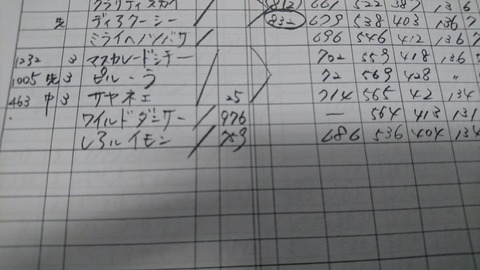 クラリティスカイ 812 661 522 387 136
先 ディスクーシー 832 679 538 403 136
ミライヘノツバサ 696 546 412 136
1232 3 マスカレードシチー 702 559 418 136
1005 先 3 ピルーラ 72 569 428 〃
463 中 3 サヤネエ 25 714 565 42 134
ワイルドダンサー 976 — 564 413 131
759 686 536 404 134